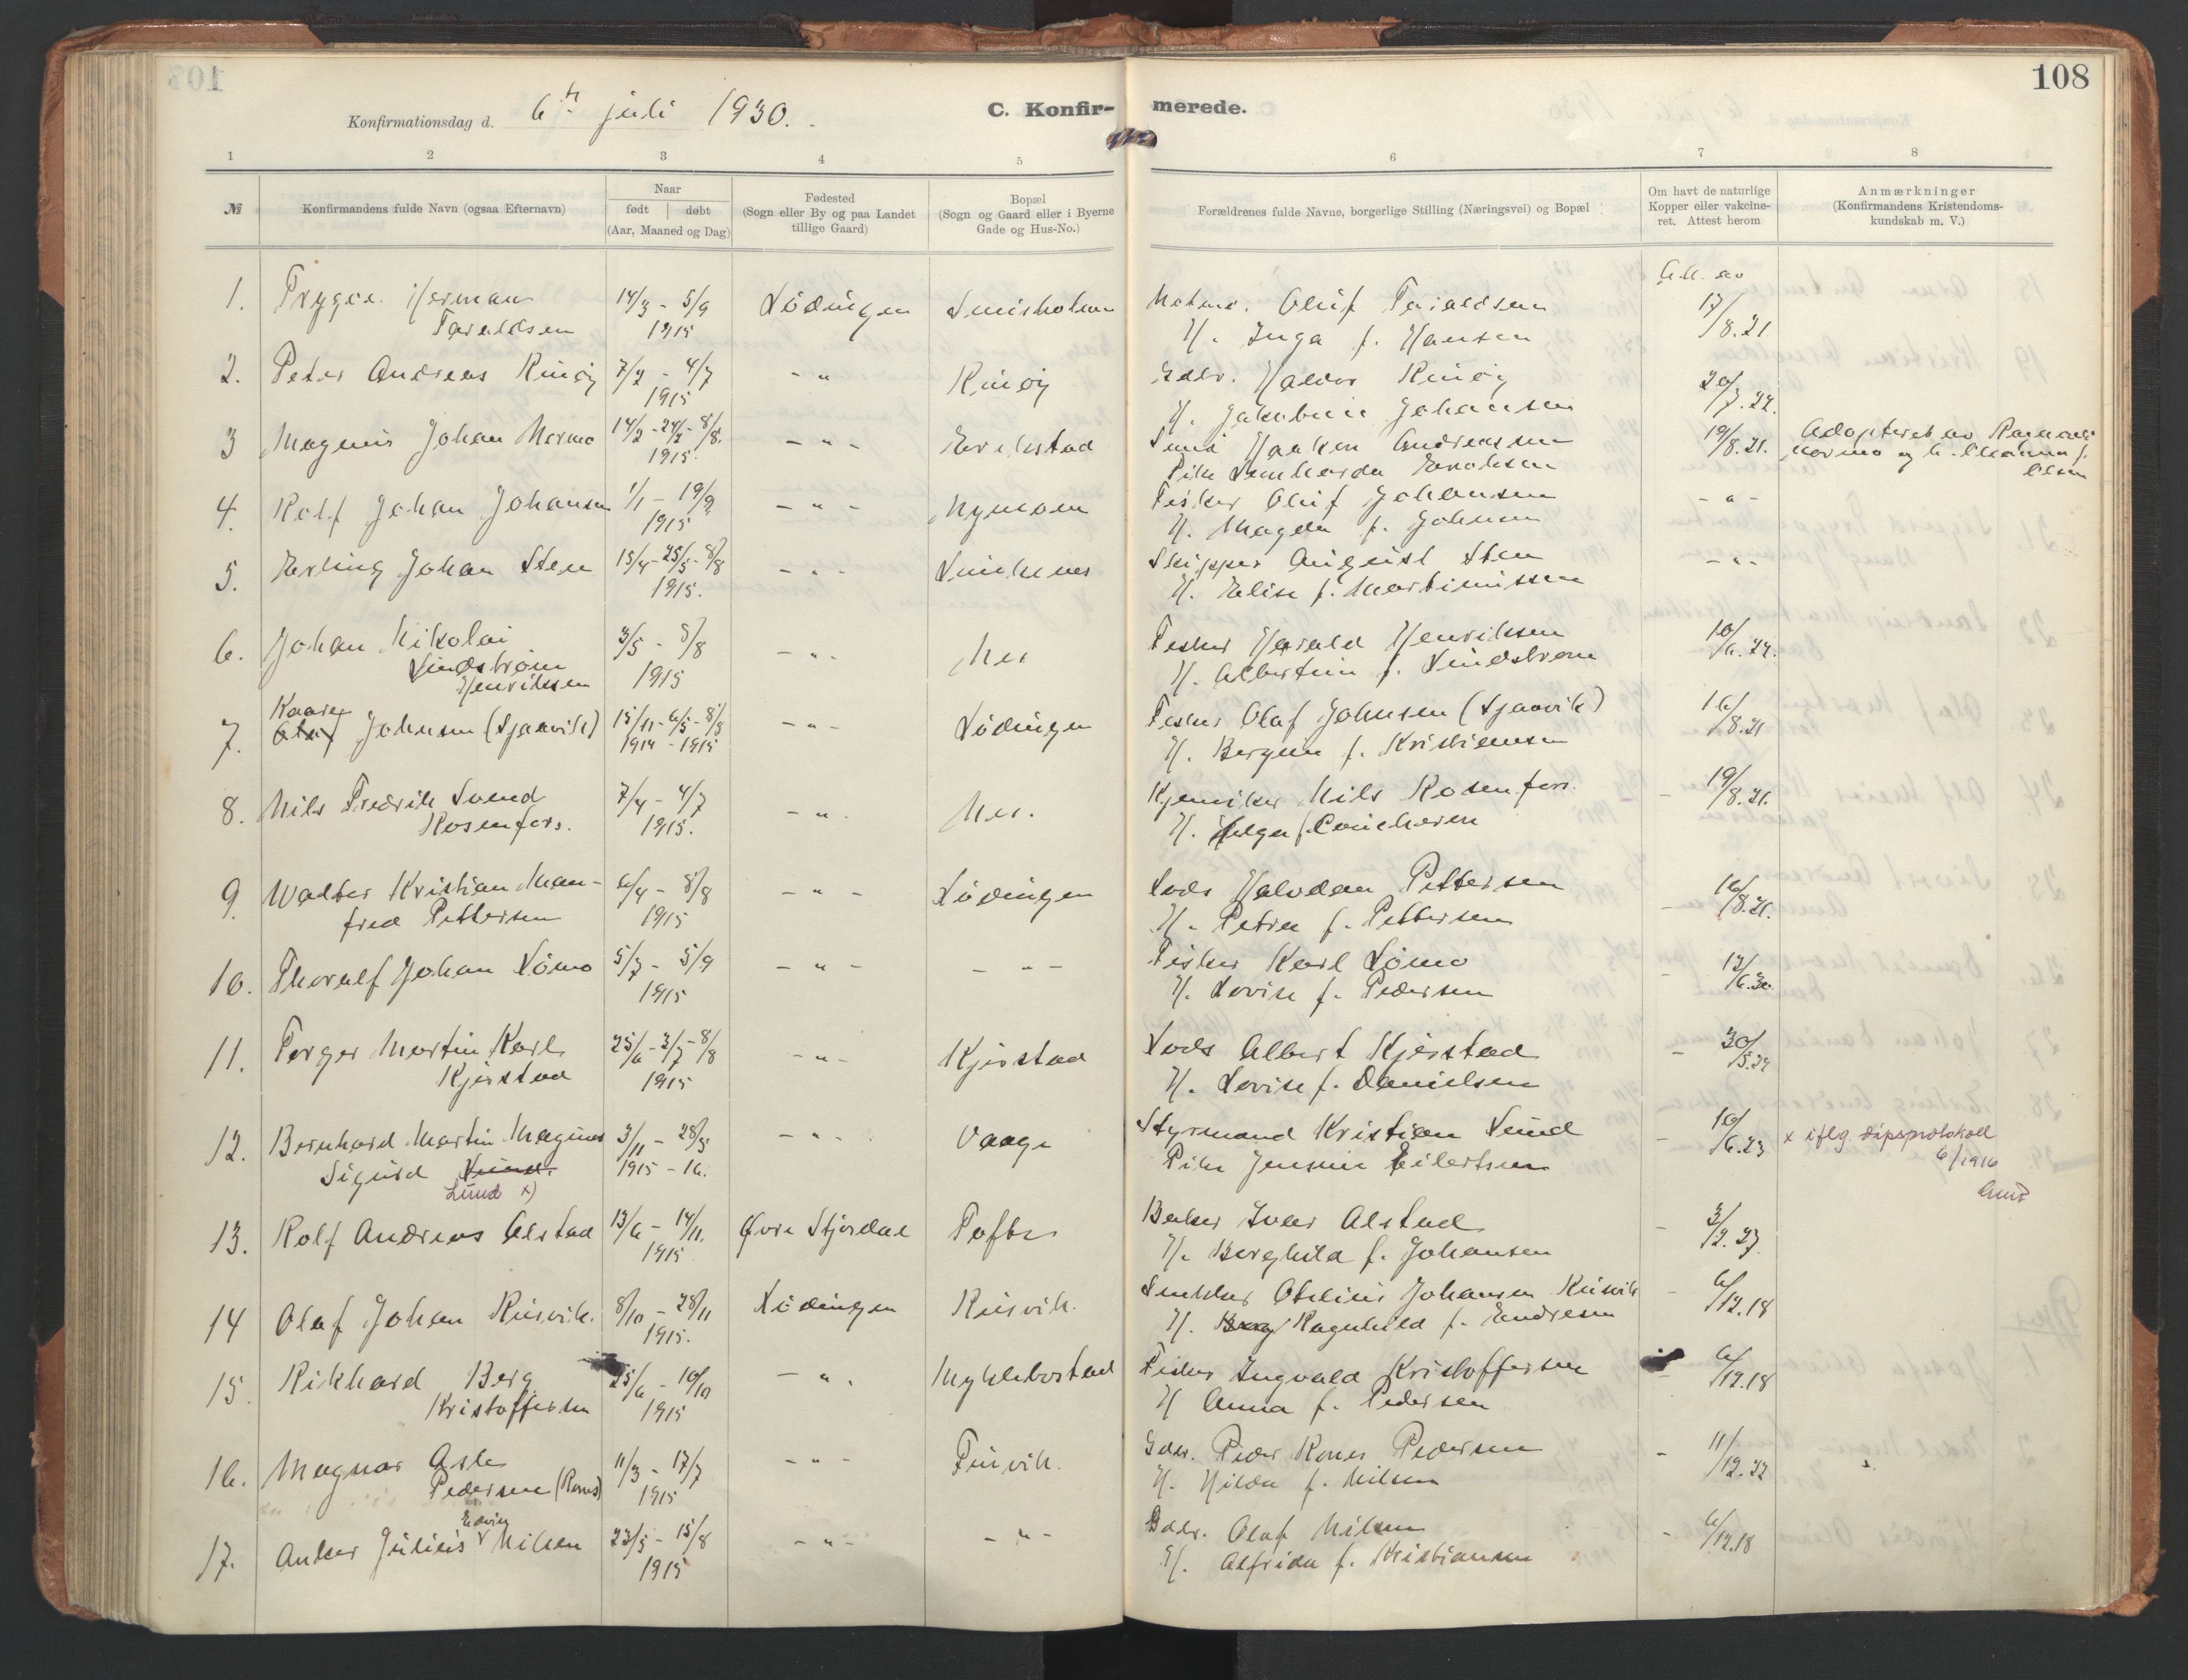 108
Konfirmationsdag d. 6te juli 1930.
C. Konfir- merede.
1 2 3 4 5 6 7 8
№
Konfirmandens fulde Navn (ogsaa Efternavn)
Naar
født | døbt
(Aar, Maaned og Dag)
Fødested
(Sogn eller By og paa Landet
tillige Gaard)
Bopæl
(Sogn og Gaard eller i Byerne
Gade og Hus-No.)
Forældrenes fulde Navne, borgerlige Stilling (Næringsvei) og Bopæl
Om havt de naturlige
Kopper eller vakcine-
ret. Attest herom
Anmærkninger
(Konfirmandens Kristendoms-
kundskab m. V.)
1. Trygve Herman 14/3 - 5/9 Lødingen Oluf Taraldsen 17/8.21
Taraldsen 1915 H. Inga f. Hansen
2. Peter Andreas Rinøy 7/2 - 4/7 - " Rinøy Gdbr. Haldor Rinøy 20/7.22.
1915 H. Jakobine Johansen
3 Magnus Johan Normo 14/2 - 24/2 - 8/8. - " - Erikstad Haakon Andreassen 19/8.21. Adopteret av
1915. Pike Lenharda Eriksen Normo og h. f.
Olsen
4. Rolf Johan Johansen 1/1 - 19/9 - " - Fisker Oluf Johansen - " -
1915 H. Magda f. Johnsen
5. Erling Johan Sten 15/4 - 25/5 - 8/8 - " - Skipper August Sten - " -
1915. H. Elise f. Martinussen
6. Johan Nikolai 3/5 - 8/8 - " - Nes Fisker Harald Henriksen 10/6.22.
Lindstrøm H. Albertine f. Lindstrøm
Henriksen 1915
Kaare
7. Olaf Johnsen (Sjaavik) 15/11 - 6/5 - 8/8 - " - Lødingen Fisker Olaf Johnsen (Sjaavik) 16/8.21
1914 - 1915 H. Bergine f. Kristiansen
8. Nils Fredrik Svend 7/4 - 4/7 - " - Nes. Nils Rosenfors. 19/8.21.
Rosenfors. 1915. H. Helga f.
9. Walter Kristian Man- 6/4 - 8/8 - " - Lødingen Lods Halvdan Pettersen 16/8.21.
fred Pettersen 1915 H. Petra f. Pettersen
10. Thoralf Johan Lømo 5/7 - 5/9 - " - - " - Fisker Karl Lømo 12/6.30
1915 H. Lovise f. Pedersen
11. Torger Martin Karl 25/6 - 3/7 - 8/8 - " - Kjerstad Lods Albert Kjerstad 30/5.24
Kjerstad 1915 H. Lovise f. Danielsen
12. Bernhard Martin Magnus 3/11 - 28/5 - " - Vaage Styrmand Kristian Lund 10/6.23 x iflg. dåpsprotokoll
Sigurd Lund. 1915 - 16. Pike Jensine Eilertsen 6/1916
Lund x)
13. Rolf Andreas Alstad 13/6 - 14/11. Øvre Stjørdal Tofte Baker Ivar Alstad 3/2.27
1915 H. Borghild f. Johansen
14 Olaf Johan Rusvik. 8/10 - 28/11 Lødingen Rusvik. Johansen Rusvik 6/12.18
1915. H. Ragnhild f. Endresen
15. Rikhard Berg 25/6 - 10/10 - " . Myklebostad Fisker Ingvald Kristoffersen 6/12.18
Kristoffersen 1915 H Anna f. Pedersen
16. Magnar Asle 11/3 - 17/7 - " - Finvik. Gdbr. Peder Rones Pedersen 11/12.22
Pedersen (Rones) 1915 H. Hilda f. Nilsen
Edvin
17. Anker Julius v Nilsen 23/5 - 15/8 - " - - " - Gdbr. Olaf Nilsen 6/12.18
1915 H. Alfrida f. Kristiansen